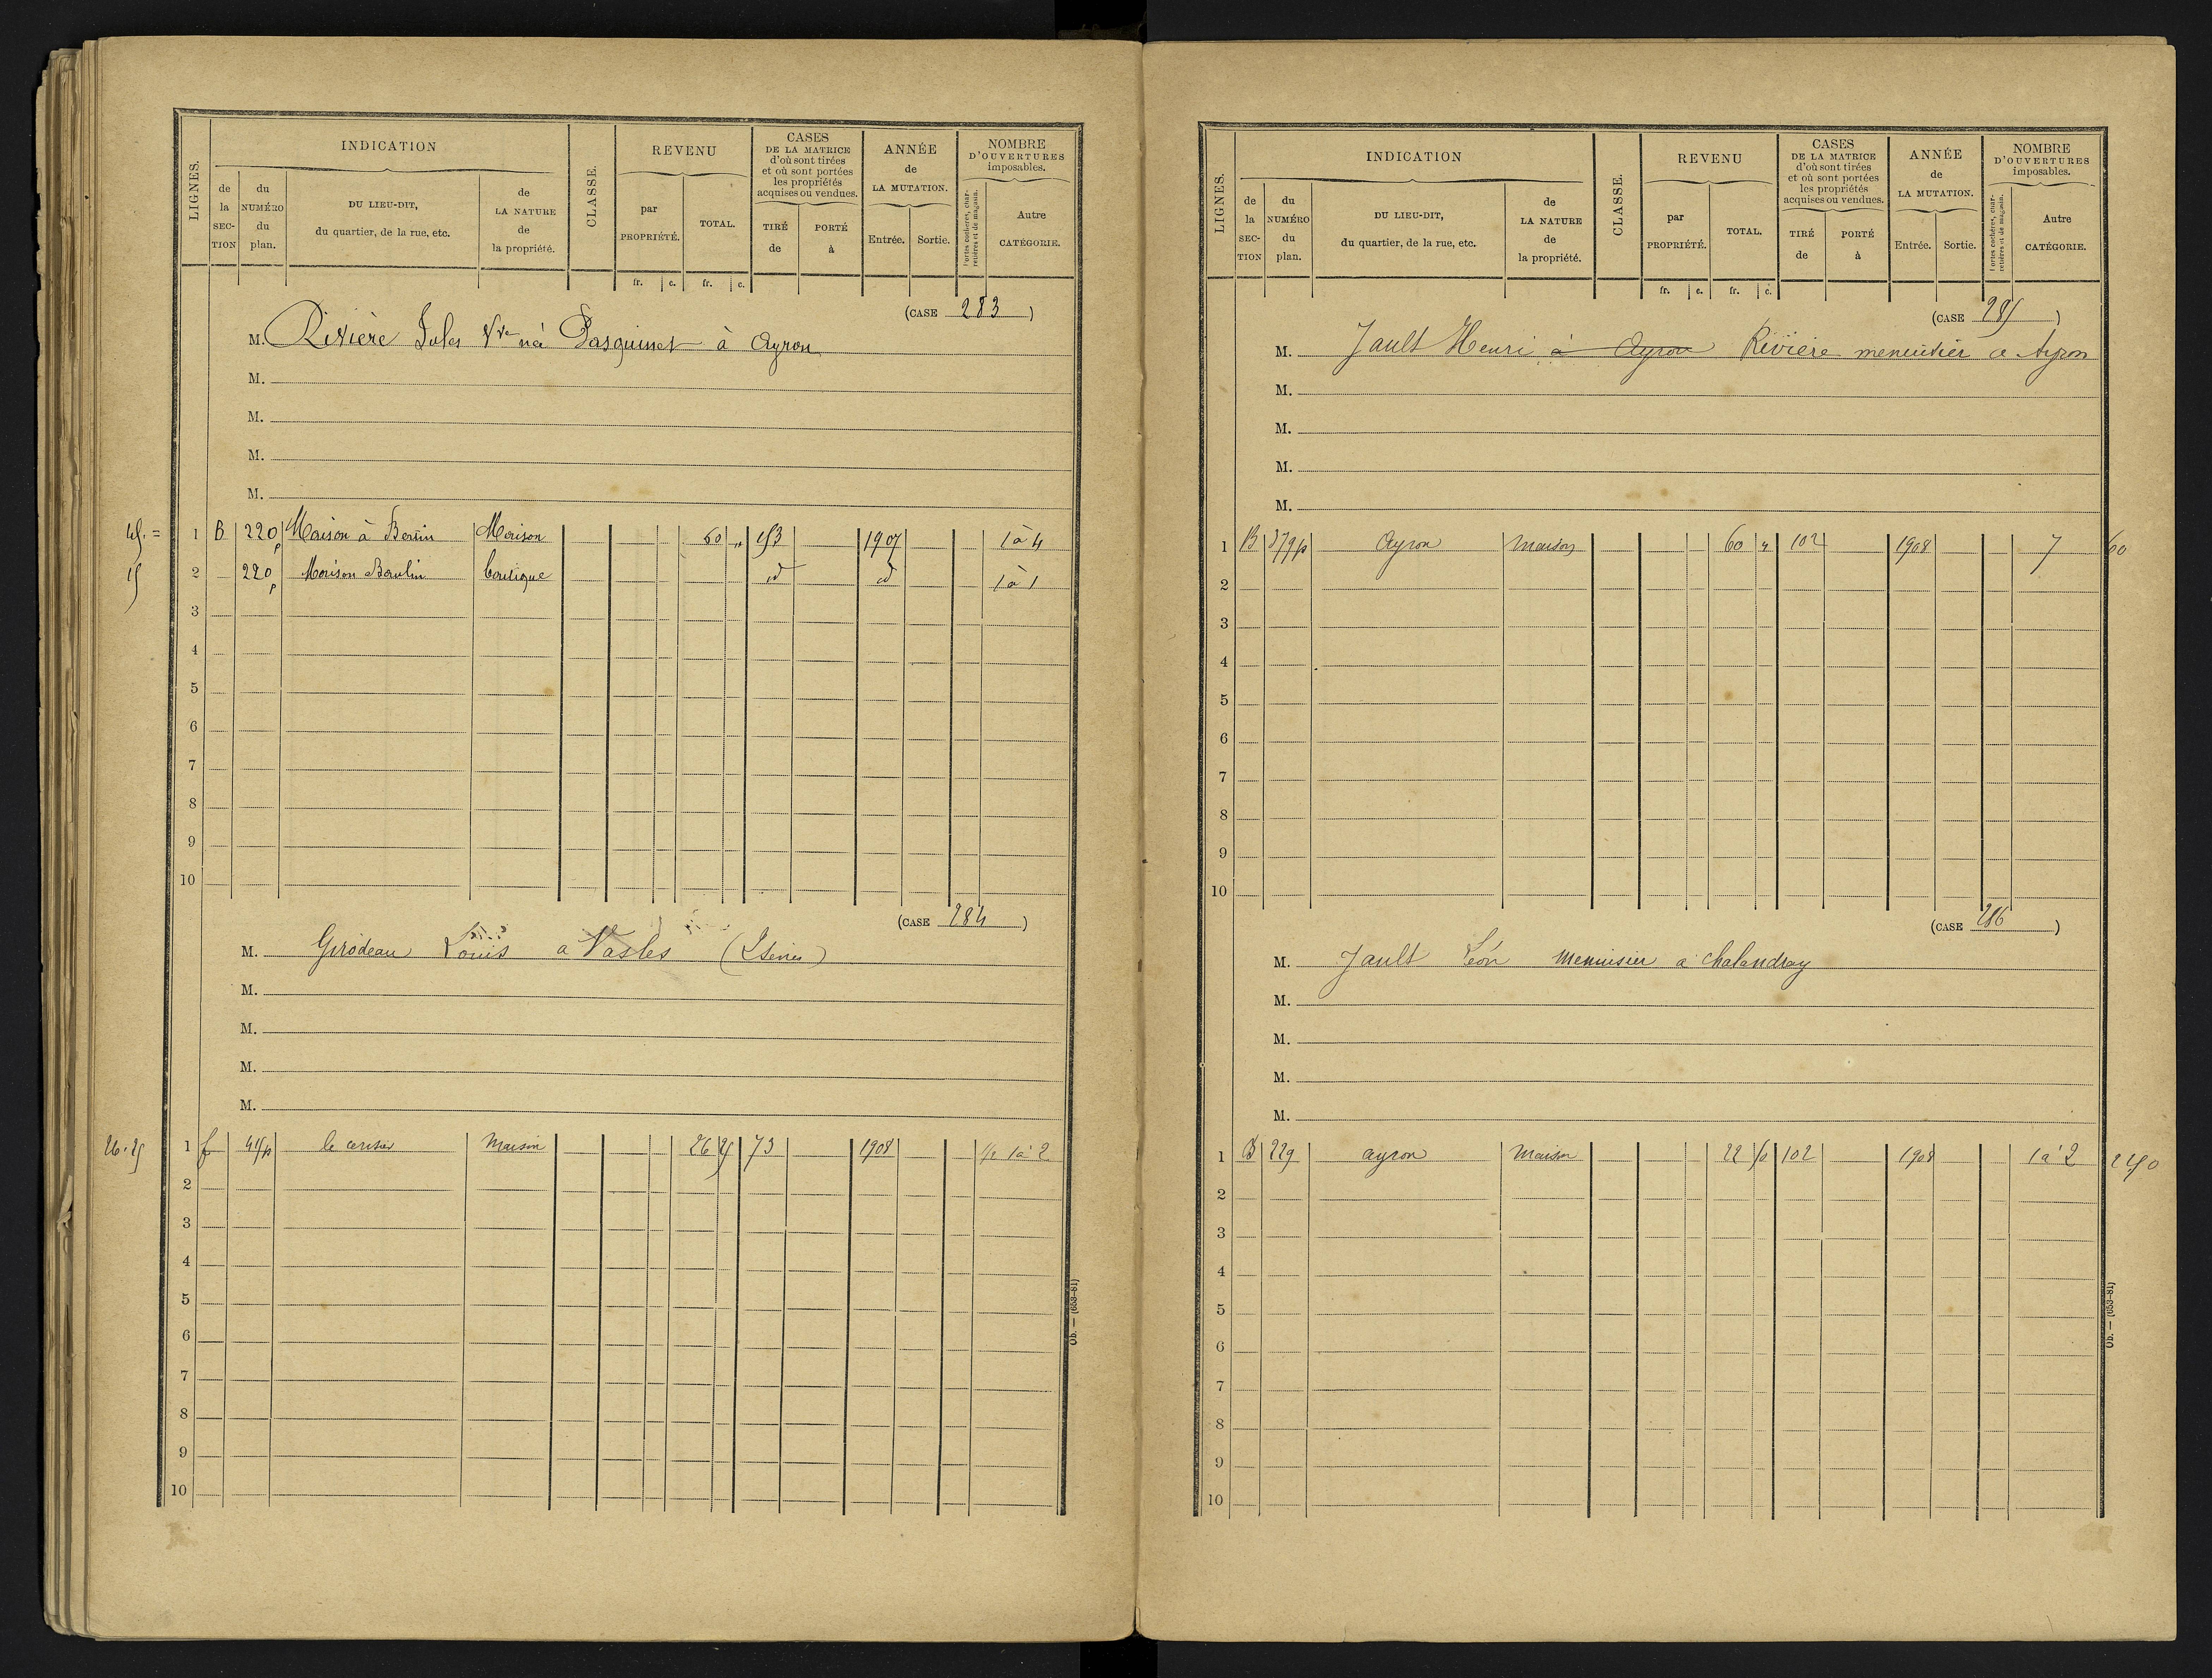 LIGNES.
INDICATION
de la SEC-TION
du NUMÉRO du plan.
DU LIEU-DIT, du quartier, de la rue, etc.
de LA NATURE de la propriété.
CLASSE.
REVENU
par PROPRIÉTÉ.
TOTAL.
CASES DE LA MATRICE d'où sont tirées et où sont portées les propriétés acquises ou vendues.
TIRÉ de
PORTÉ à
ANNÉE de LA MUTATION.
Entrée.
Sortie.
NOMBRE D'OUVERTURES imposables.
Portes cochères, charretières et de magasin.
Autre CATÉGORIE.
fr. c. fr. c.
(CASE 283)
M. Rivière Jules Vve née Pasquinet à Ayron
M.
M.
M.
M.
45. = 1 B 220p Maison à Maison 60 " 153 1907 1 à 4
15 2 220p Maison Boutique id id 1 à 1
3
4
5
6
7
8
9
10
(CASE 284)
M. Girodeau Louis a Vasles (2 Sèvres)
M.
M.
M.
M.
26.25 1 f 415p le cerisier Maison 26 25 73 1908 1 à 2
2
3
4
5
6
7
8
9
10
Ob. — (653-81)
LIGNES.
INDICATION
de la SEC-TION
du NUMÉRO du plan.
DU LIEU-DIT, du quartier, de la rue, etc.
de LA NATURE de la propriété.
CLASSE.
REVENU
par PROPRIÉTÉ.
TOTAL.
CASES DE LA MATRICE d'où sont tirées et où sont portées les propriétés acquises ou vendues.
TIRÉ de
PORTÉ à
ANNÉE de LA MUTATION.
Entrée.
Sortie.
NOMBRE D'OUVERTURES imposables.
Portes cochères, charretières et de magasin.
Autre CATÉGORIE.
fr. c. fr. c.
(CASE 285)
M. Jault Henri à Ayron Rivière menuisier a Ayron
M.
M.
M.
M.
1 B 379p Ayron Maison 60 " 102 1908 7 60
2
3
4
5
6
7
8
9
10
(CASE 286)
M. Jault Léon Menuisier a Chalandray
M.
M.
M.
M.
1 B 229 ayron Maison 22 50 102 1908 1 à 2 2250
2
3
4
5
6
7
8
9
10
Ob. — (653-81)